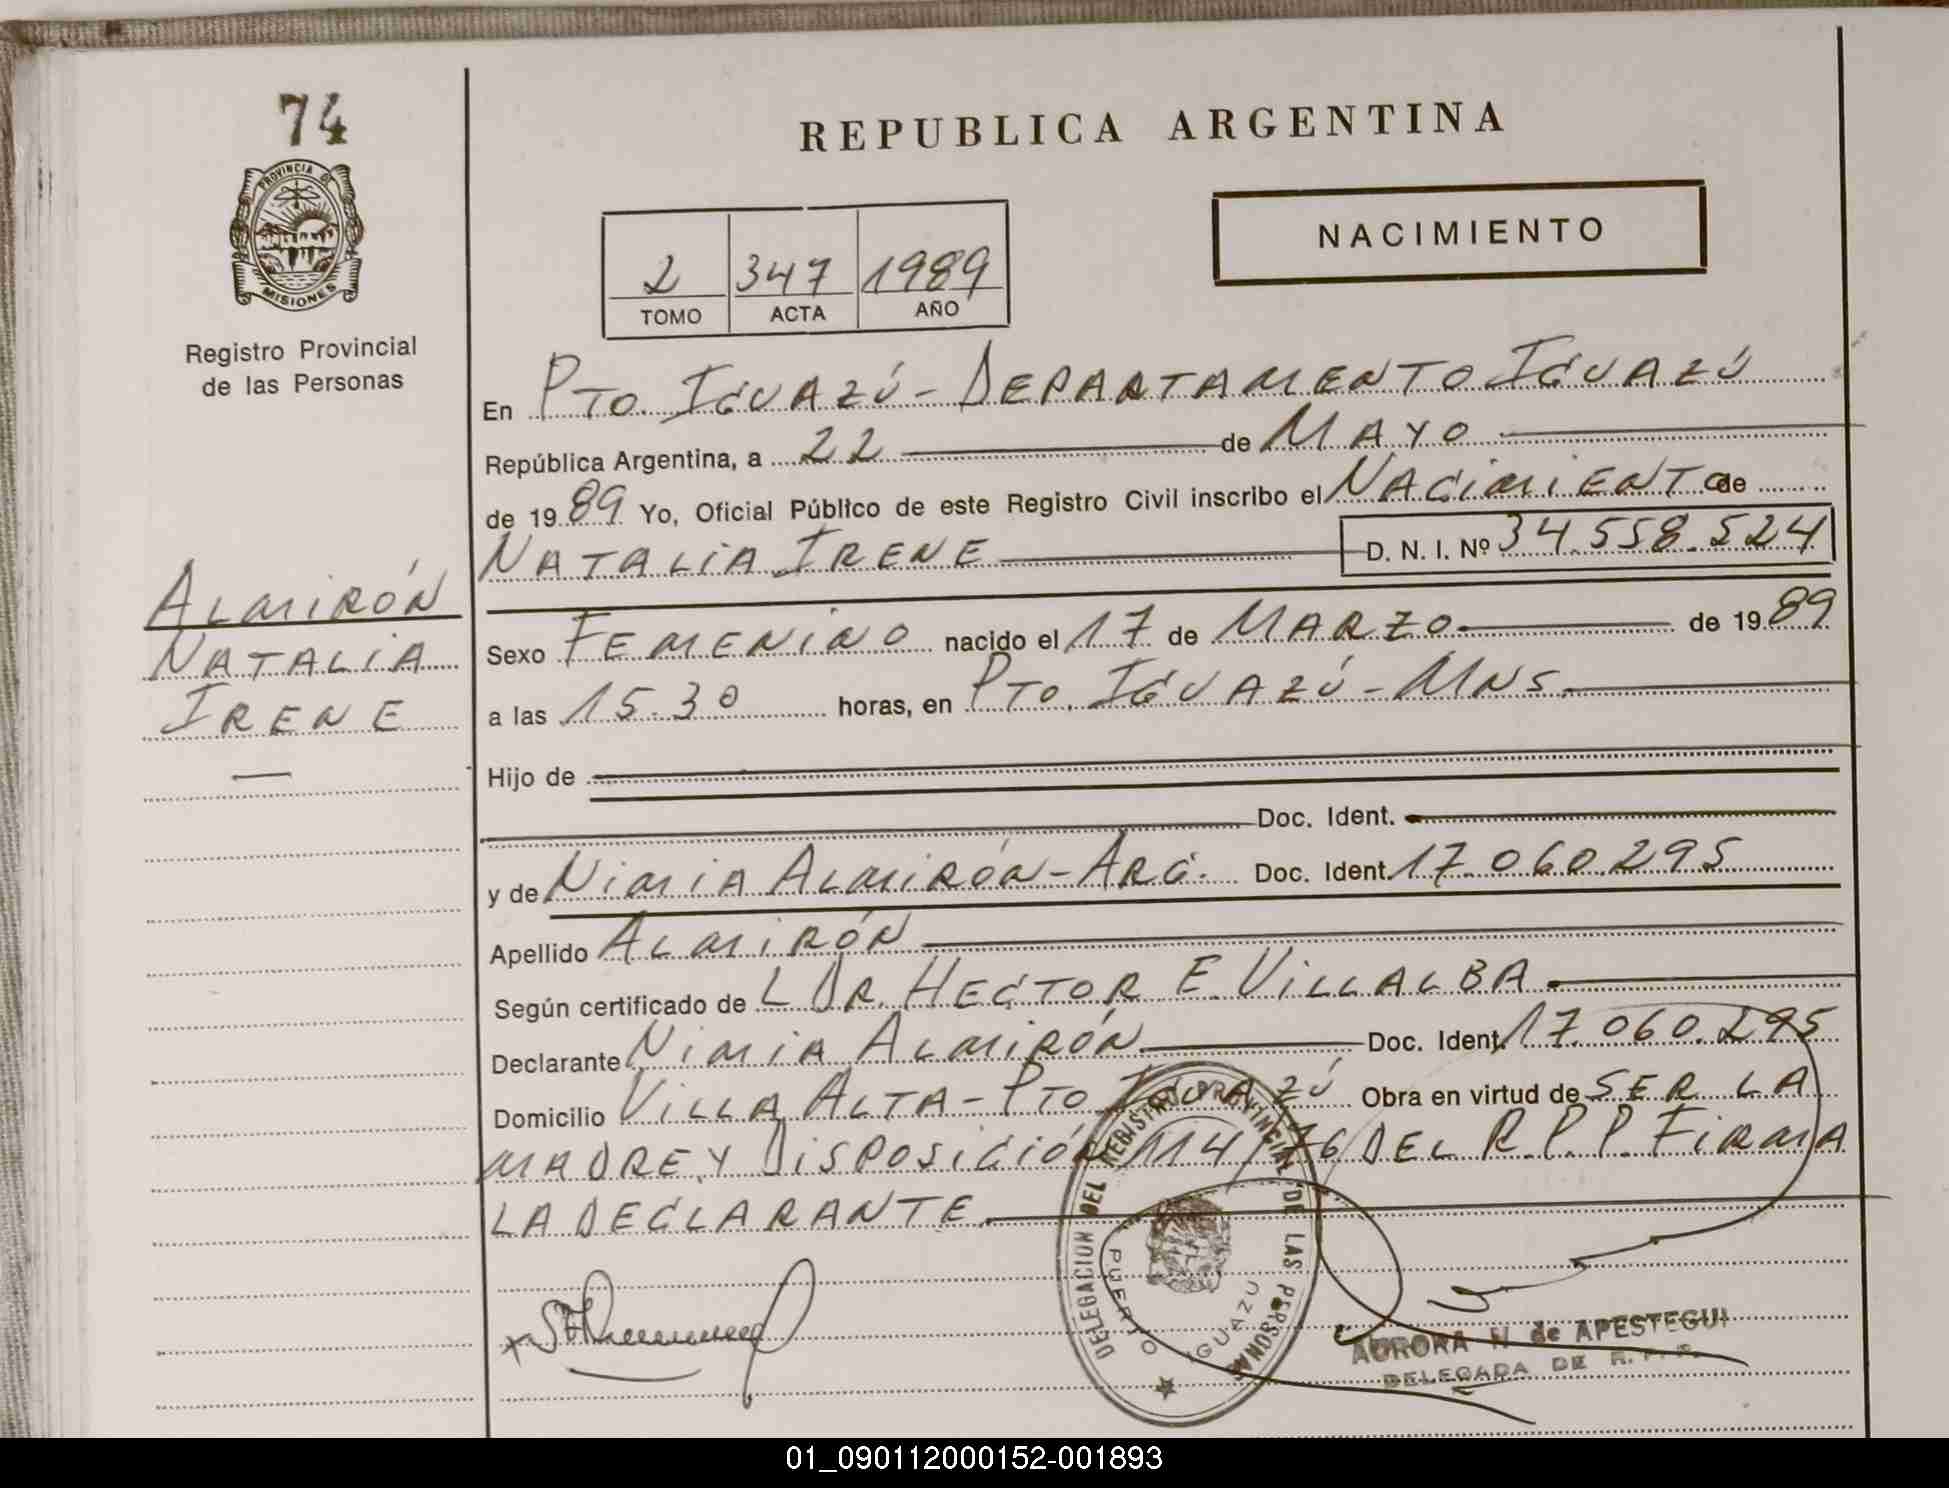 74
PROVINCIA DE
MISIONES
Registro Provincial
de las Personas
ALMIRÓN
NATALIA
IRENE
REPUBLICA ARGENTINA
NACIMIENTO
2 347 1989
TOMO ACTA AÑO
En PTO. IGUAZÚ - DEPARTAMENTO IGUAZÚ
República Argentina, a 22 de MAYO
de 1989 Yo, Oficial Público de este Registro Civil inscribo el NACIMIENTO de
NATALIA IRENE D. N. I. Nº 34.558.524
Sexo FEMENINO nacido el 17 de MARZO de 1989
a las 15.30 horas, en PTO. IGUAZÚ - MNS.
Hijo de
Doc. Ident.
y de NIMIA ALMIRÓN - ARG. Doc. Ident. 17.060.295
Apellido ALMIRÓN
Según certificado de L DR. HECTOR E. VILLALBA
Declarante NIMIA ALMIRÓN Doc. Ident. 17.060.295
Domicilio VILLA ALTA - PTO IGUAZÚ Obra en virtud de SER LA
MADRE Y DISPOSICIÓN 114/76 DEL R.P.P. FIRMA
LA DECLARANTE
DELEGACION DEL REGISTRO PROVINCIAL DE LAS PERSONAS
PUERTO IGUAZU
AURORA N de APESTEGUI
DELEGADA DE R. P. P.
01_090112000152-001893